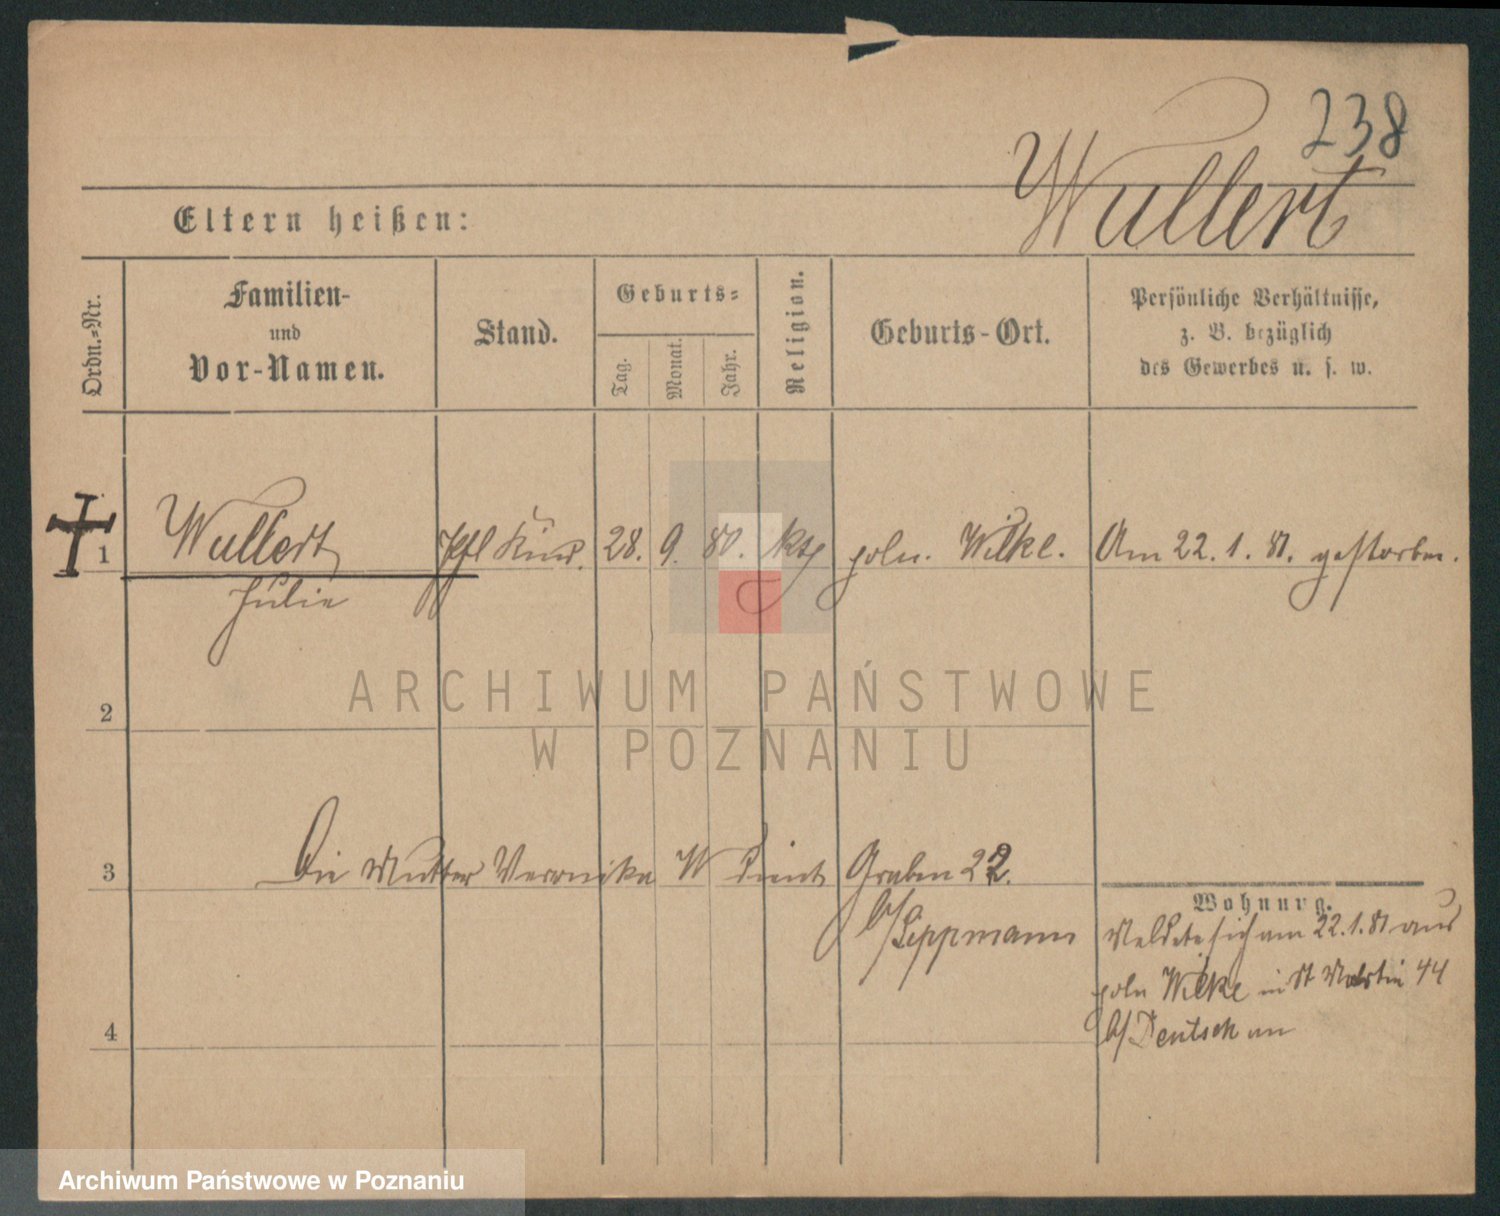 238
Wullert
Eltern heißen:
Ordn.-Nr.
Familien-
und
Vor-Namen.
Stand.
Geburts-
Tag.
Monat.
Jahr.
Religion.
Geburts-Ort.
Persönliche Verhältnisse,
z. B. bezüglich
des Gewerbes u. s. w.
1 Wullert Pfl Kind. 28. 9. 80. kth poln. Wilke. Am 22. 1. 81. gestorben.
Julie
ARCHIWUM PAŃSTWOWE
2
W POZNANIU
3 Die Mutter Veronika W dient Graben 22.
b/Lippmann
Wohnung.
Meldete sich am 22.1.81 aus
poln Wilke in St Martin 44
b/ Deutsch an
4
Archiwum Państwowe w Poznaniu